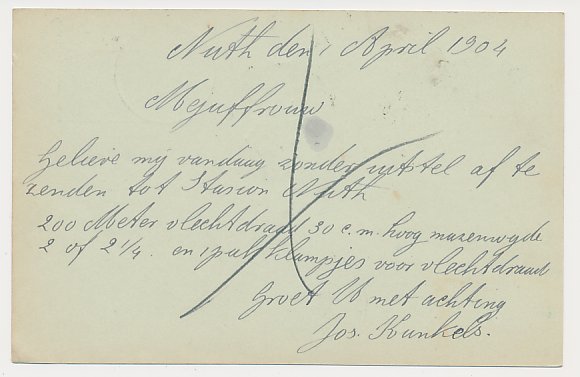 Nuth den 1 April 1904
Mejuffrouw
Gelieve mij vandaag zonder uitstel af te
zenden tot Stasion Nuth
200 Meter vlechtdraad 30 c.m. hoog mazenwijde
2 of 2 1/4. en 1 pak klampjes voor vlechtdraad
Groet U met achting
Jos. Kunkels.